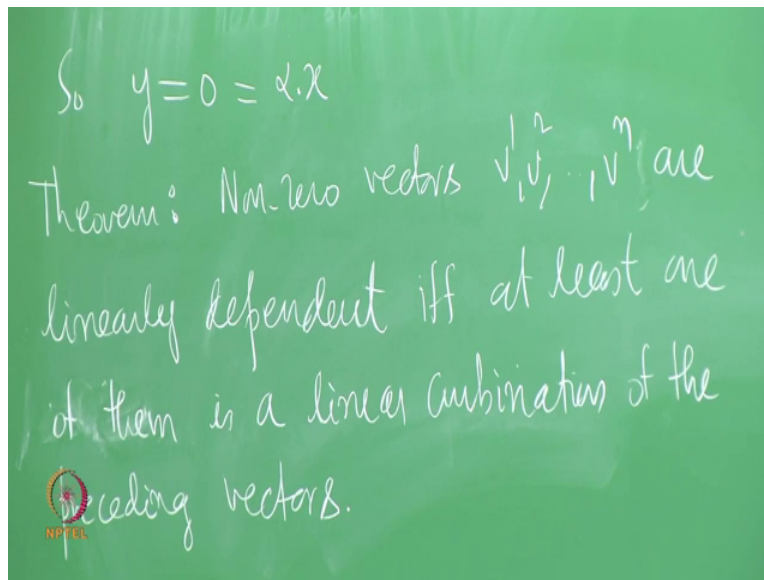 So y = 0 = α.x
Theorem: Non-zero vectors v¹, v², .., vⁿ are
linearly dependent iff at least one
of them is a linear combination of the
preceding vectors.
NPTEL